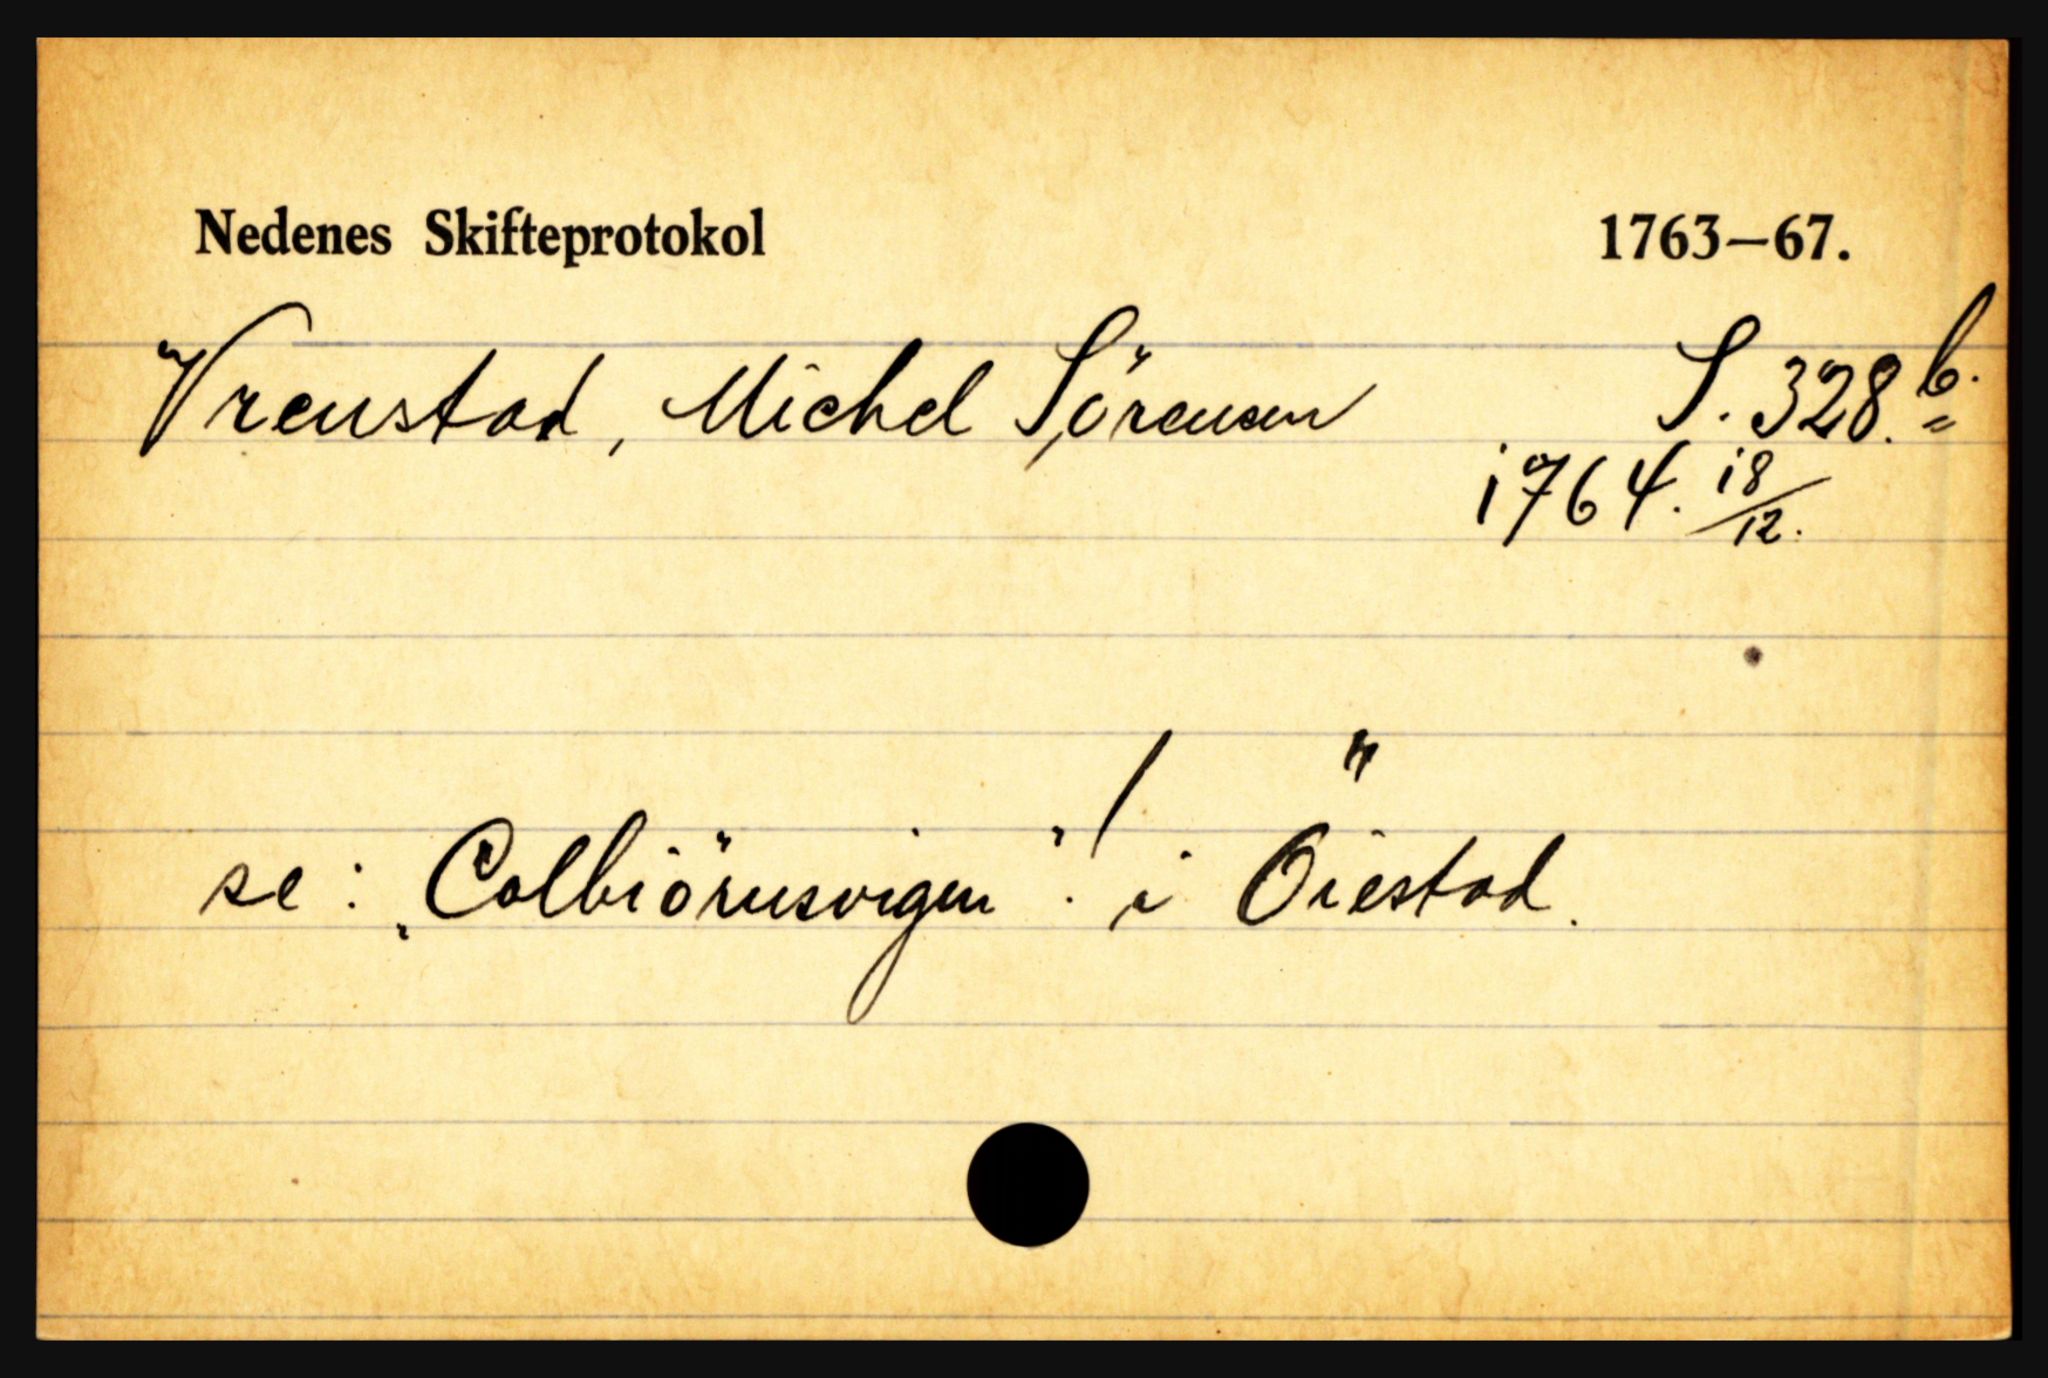 Nedenes Skifteprotokol 1763—67.
Vrenstad, Michel Sörensen S. 328.b.
1764. 18/12.
se: „Colbiörnsvigen". / i Öiestad.